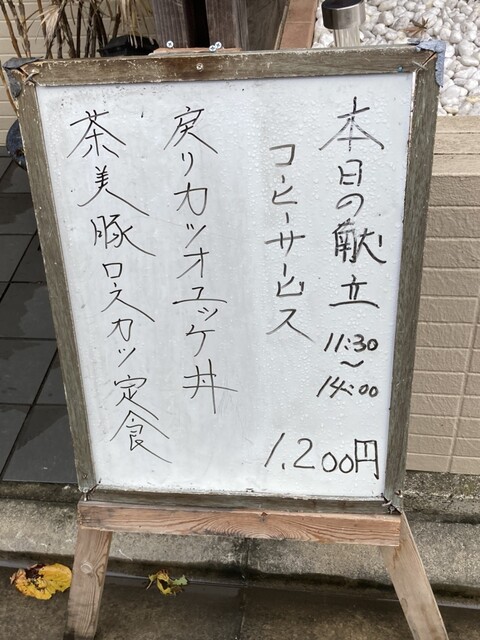 本日の献立
11:30
〜
14:00
コーヒーサービス
1.200円
戻リカツオユッケ丼
茶美豚ロスカツ定食